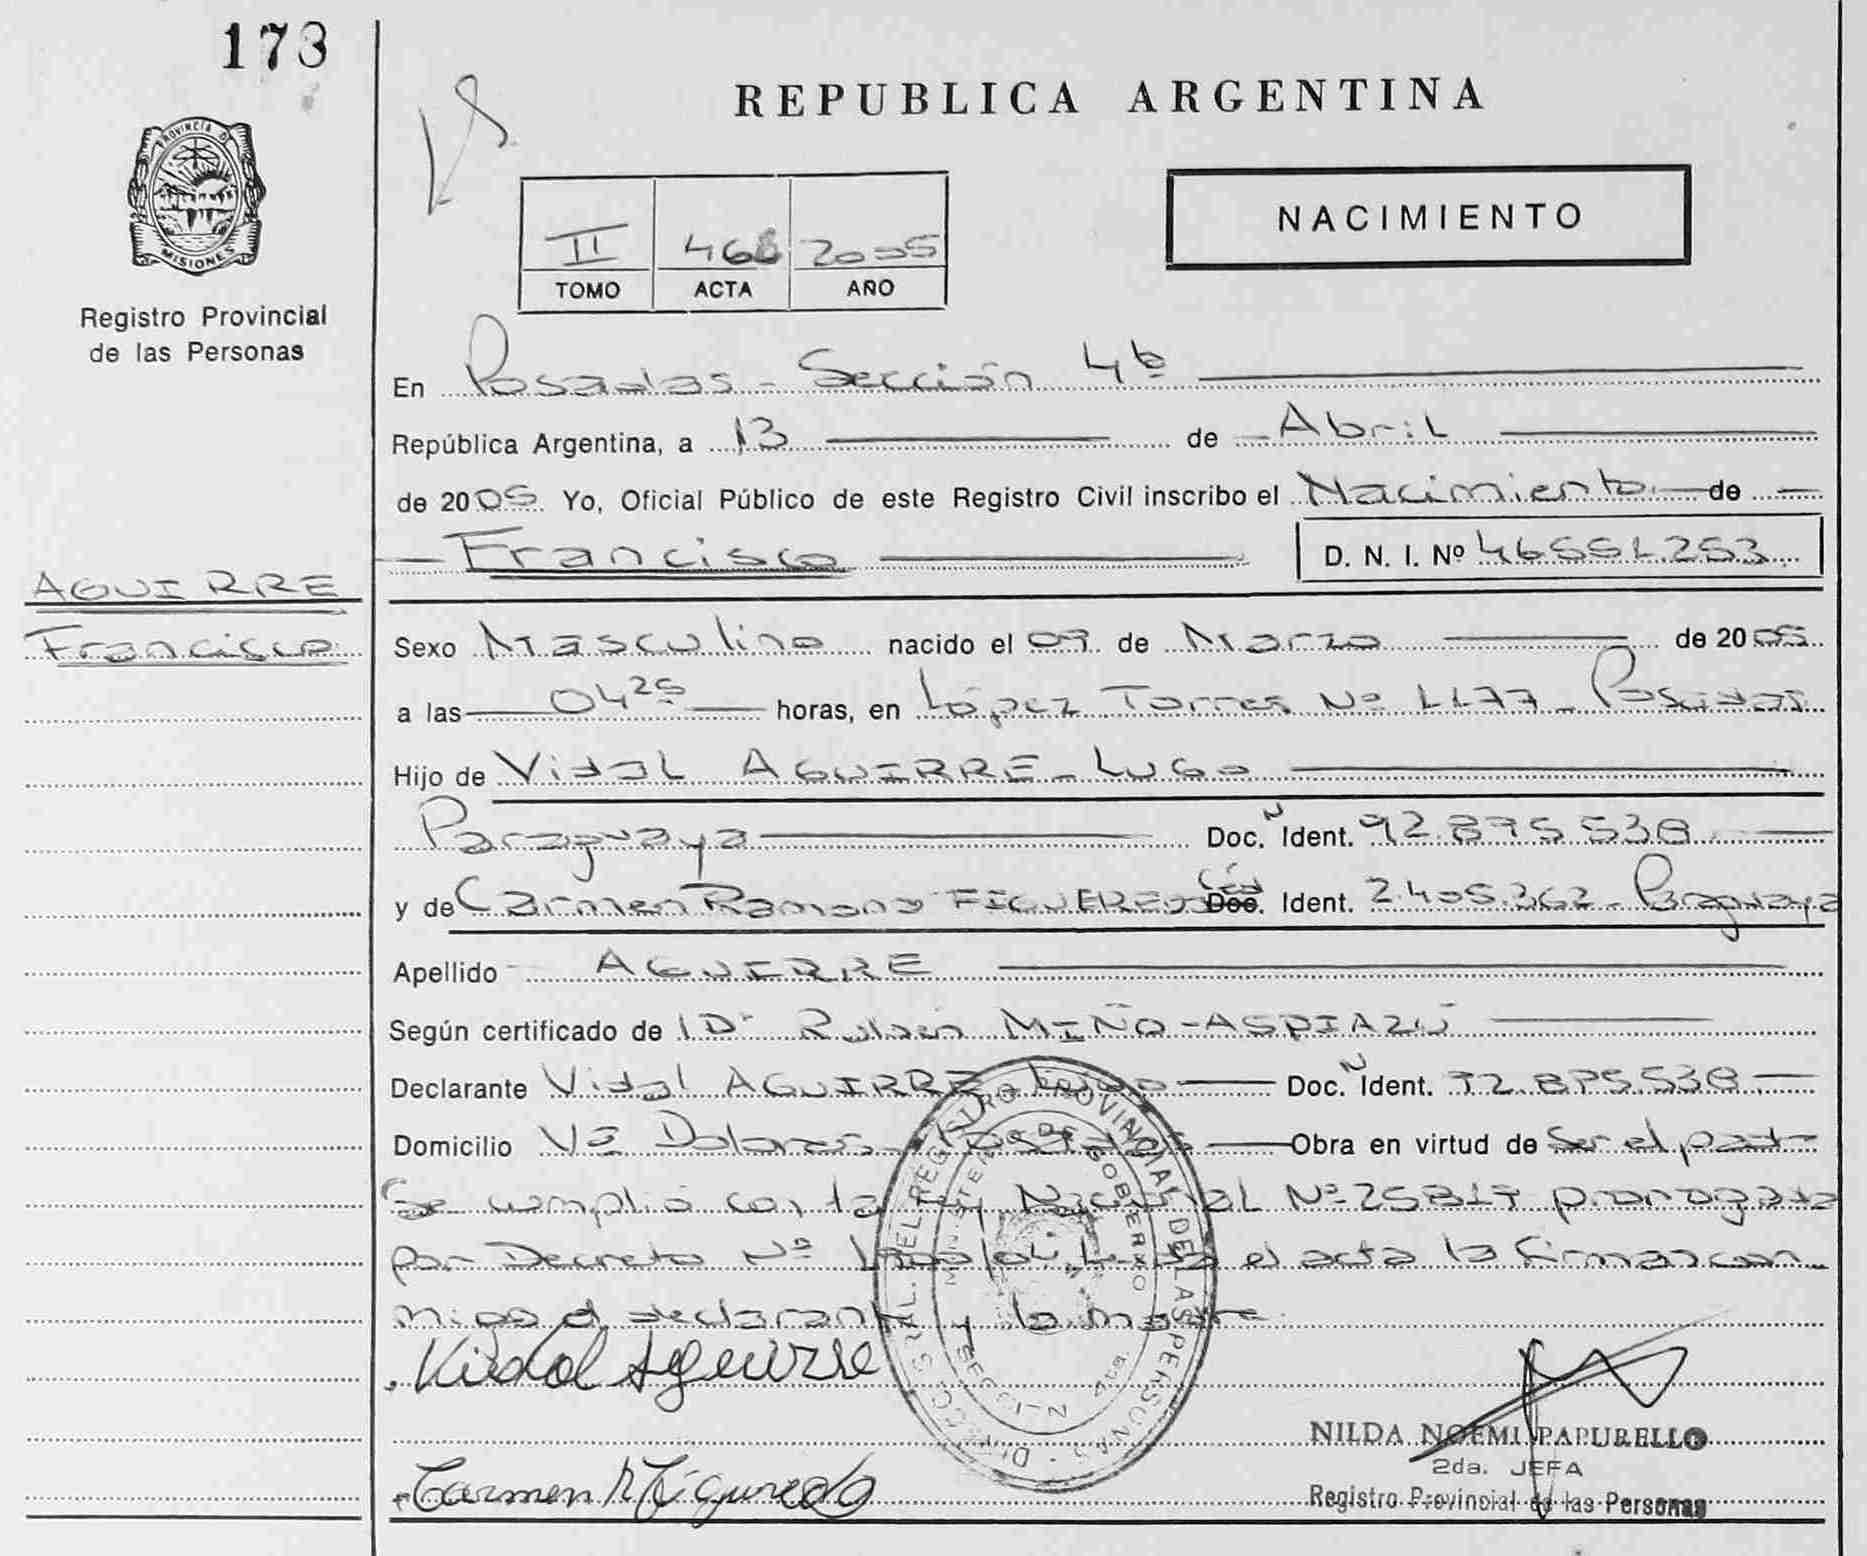 173
PROVINCIA DE
MISIONES
Registro Provincial
de las Personas
REPUBLICA ARGENTINA
NACIMIENTO
II 468 2005
TOMO ACTA AÑO
En Posadas - Sección 4ª
República Argentina, a 13 de Abril
de 2005 Yo, Oficial Público de este Registro Civil inscribo el Nacimiento de
Francisco D. N. I. Nº 46.551.253
AGUIRRE
Francisco
Sexo Masculino nacido el 09 de Marzo de 2005
a las 04 25 horas, en López Torres Nº 1177 - Posadas
Hijo de Vidal AGUIRRE - Lugo
Paraguaya Doc. N Ident. 92.875.538
y de Carmen Ramona FIGUEREDO Céd Doc. Ident. 2.405.362 - Paraguaya
Apellido AGUIRRE
Según certificado de Dr Rubén MIÑO - ASPIAZÚ
Declarante Vidal AGUIRRE Lugo Doc. N Ident. 92.875.538
Domicilio Vª Dolores - Posadas Obra en virtud de Ser el padre
Se cumplió con la Ley Nacional Nº 25819 prorrogada
por Decreto Nº Leída el acta la firman con
migo el declarante y la madre.
Vidal Aguirre
DIRECC. GRAL. DEL REGISTRO PROVINCIAL DE LAS PERSONAS
MINISTERIO DE GOBIERNO
SECCION
NILDA NOEMI PAPURELLO
2da. JEFA
Carmen R Figueredo
Registro Provincial de las Personas